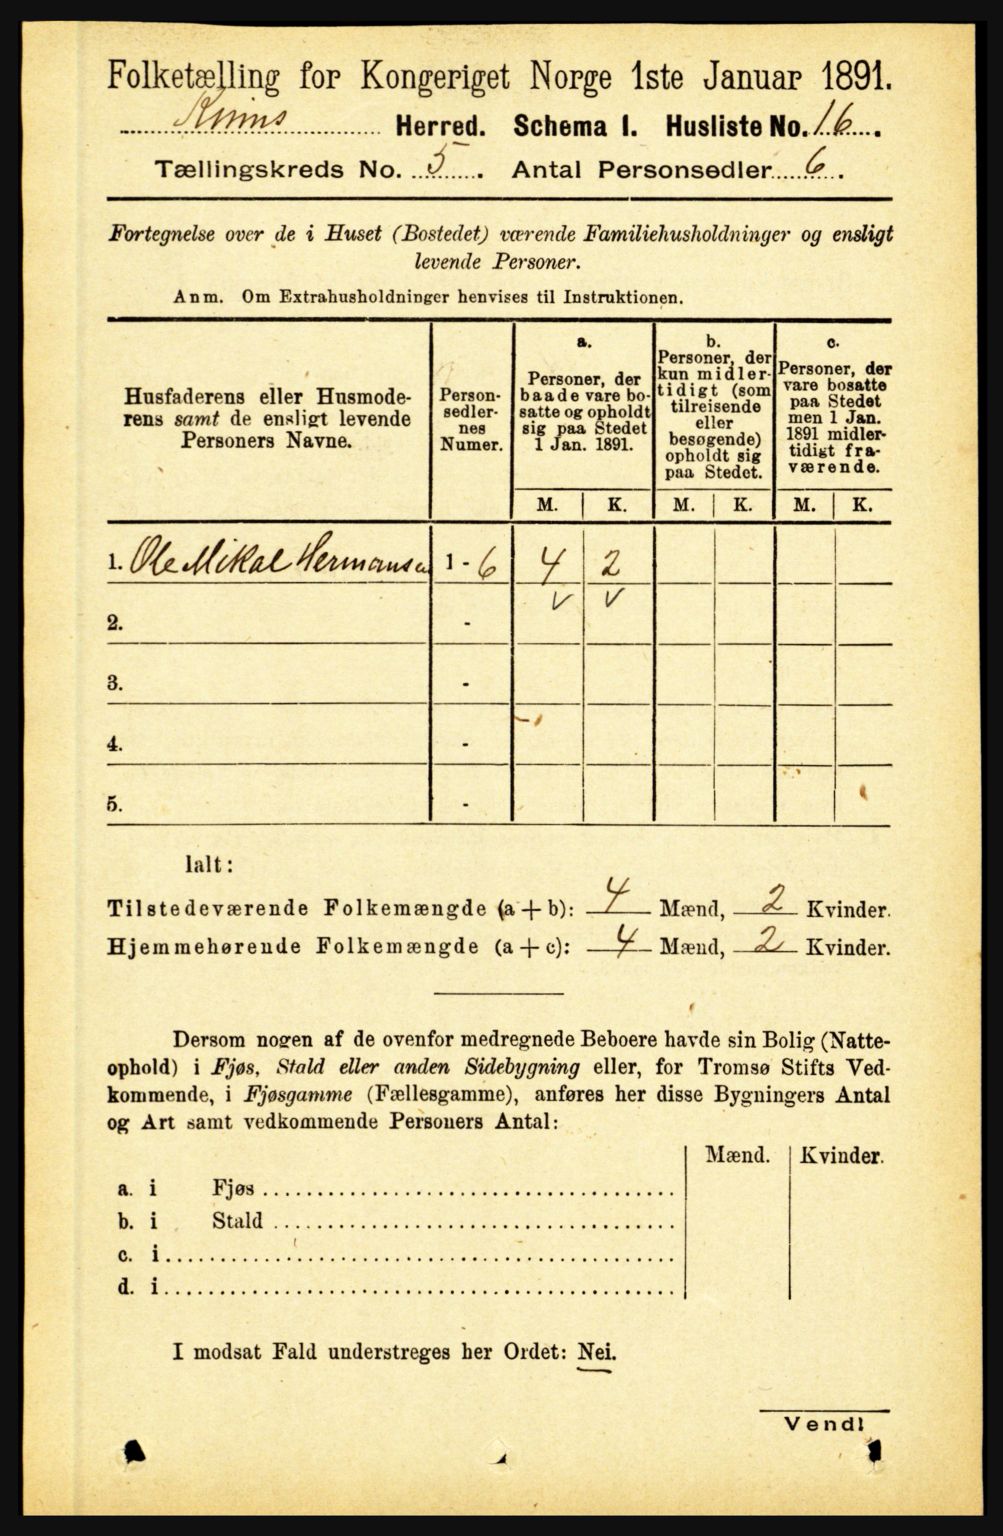 Folketælling for Kongeriget Norge 1ste Januar 1891.
Kinns Herred. Schema 1. Husliste No. 16.
Tællingskreds No. 5. Antal Personsedler 6.
Fortegnelse over de i Huset (Bostedet) værende Familiehusholdninger og ensligt
levende Personer.
Anm. Om Extrahusholdninger henvises til Instruktionen.
Husfaderens eller Husmode-
rens samt de ensligt levende
Personers Navne.
Person-
sedler-
nes
Numer.
a.
Personer, der
baade vare bo-
satte og opholdt
sig paa Stedet
1 Jan. 1891.
b.
Personer, der
kun midler-
tidigt (som
tilreisende
eller
besøgende)
opholdt sig
paa Stedet.
c.
Personer, der
vare bosatte
paa Stedet
men 1 Jan.
1891 midler-
tidigt fra-
værende.
M. K. M. K. M. K.
1. Ole Mikal Hermansen 1 - 6 4 2
2. -
3. -
4. -
5. -
Ialt:
Tilstedeværende Folkemængde (a + b): 4 Mænd, 2 Kvinder.
Hjemmehørende Folkemængde (a + c): 4 Mænd, 2 Kvinder.
Dersom nogen af de ovenfor medregnede Beboere havde sin Bolig (Natte-
ophold) i Fjøs, Stald eller anden Sidebygning eller, for Tromsø Stifts Ved-
kommende, i Fjøsgamme (Fællesgamme), anføres her disse Bygningers Antal
og Art samt vedkommende Personers Antal:
Mænd. Kvinder.
a. i Fjøs
b. i Stald
c. i
d. i
I modsat Fald understreges her Ordet: Nei.
Vend!